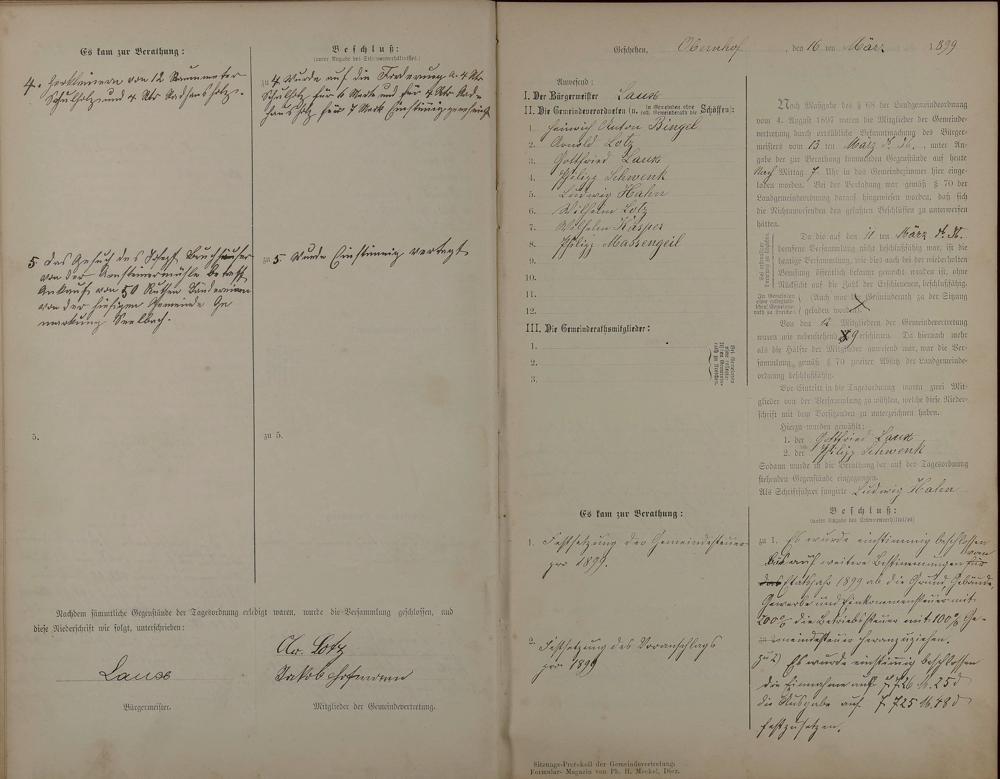 Es kam zur Berathung:
Beschluß:
(unter Angabe des Stimmenverhältnisses.)
4. Verkleinern von 12 Raummeter
Schulholz und 4 Rbr Radhausholz.
zu 4 Wurde auf die Forderung a. 4 Rbr
Schulholz für 6 Mark und für 4 Rbr Rad-
hausholz für 7 Mark Einstimmig genehmigt
5 Das Gesuch des Josef
von der
Ankauf von 50 Ruthen
von der hiesigen Gemeinde Ge
markung Seelbach.
zu 5 Wurde Einstimmig vertagt
5.
zu 5.
Nachdem sämmtliche Gegenstände der Tagesordnung erledigt waren, wurde die Versammlung geschlossen, und
diese Niederschrift wie folgt, unterschrieben:
Laux
Bürgermeister.
Ar. Lotz
Jakob Hofmann
Mitglieder der Gemeindevertretung.
Geschehen, Obernhof, den 16 ten März 1899
Anwesend:
I. Der Bürgermeister Laux
II. Die Gemeindeverordneten (in Gemeinden ohne coll. Gemeinderath die Schöffen):
1. Heinrich Anton Bingel
2. Arnold Lotz
3. Gottfried Laux
4. Philipp Schwenk
5. Ludwig Hahn
6. Wilhelm Lotz
7. Wilhelm Kasper
8. Philipp Massengeil
9.
10.
11.
12.
III. Die Gemeinderathsmitglieder:
1.
2.
3.
Nach Maßgabe des § 68 der Landgemeindeordnung
vom 4. August 1897 waren die Mitglieder der Gemeinde-
vertretung durch ortsübliche Bekanntmachung des Bürger-
meisters vom 13 ten März d. Js., unter An-
gabe der zur Berathung kommenden Gegenstände auf heute
Nach Mittag 7 Uhr in das Gemeindezimmer hier einge-
laden worden. Bei der Vorladung war gemäß § 70 der
Landgemeindeordnung darauf hingewiesen worden, daß sich
die Nichtanwesenden den gefaßten Beschlüssen zu unterwerfen
hätten.
Da die auf den 11 ten März d. Js.
berufene Versammlung nicht beschlußfähig war, ist die
heutige Versammlung, wie dies auch bei der wiederholten
Berufung öffentlich bekannt gemacht worden ist, ohne
Rücksicht auf die Zahl der Erschienenen, beschlußfähig.
(Auch war der Gemeinderath zu der Sitzung
geladen worden.)
Von den 12 Mitgliedern der Gemeindevertretung
waren wie nebenstehend 9 erschienen. Da hiernach mehr
als die Hälfte der Mitglieder anwesend war, war die Ver-
sammlung, gemäß § 70 zweiter Absatz der Landgemeinde-
ordnung beschlußfähig.
Vor Eintritt in die Tagesordnung waren zwei Mit-
glieder von der Versammlung zu wählen, welche diese Nieder-
schrift mit dem Vorsitzenden zu unterzeichnen haben.
Hierzu wurden gewählt:
1. der Gottfried Laux
2. der Philipp Schwenk
Sodann wurde in die Berathung der auf der Tagesordnung
stehenden Gegenstände eingegangen.
Als Schriftführer fungirte Ludwig Hahn
Es kam zur Berathung:
1. Festsetzung der Gemeindesteuer
pro 1899.
2. Festsetzung des Voranschlags
pro 1899
Beschluß:
(unter Angabe des Stimmenverhältnisses)
zu 1. Es wurde einstimmig beschlossen
Bis auf weitere Bestimmungen für
Etatsjahr 1899 ab die Grund, Gebäude,
Gewerbe und Einkommensteuer mit
200% die Betriebssteuer mit 100% Ge-
meindesteuer heranzuziehen.
zu 2) Es wurde einstimmig beschlossen
die Einnahme auf 7,726 M. 25 d
die Ausgabe auf 7,725 M. 48 d
festzusetzen.
Sitzungs-Protokoll der Gemeindevertretung.
Formular-Magazin von Ph. H. Meckel, Diez.